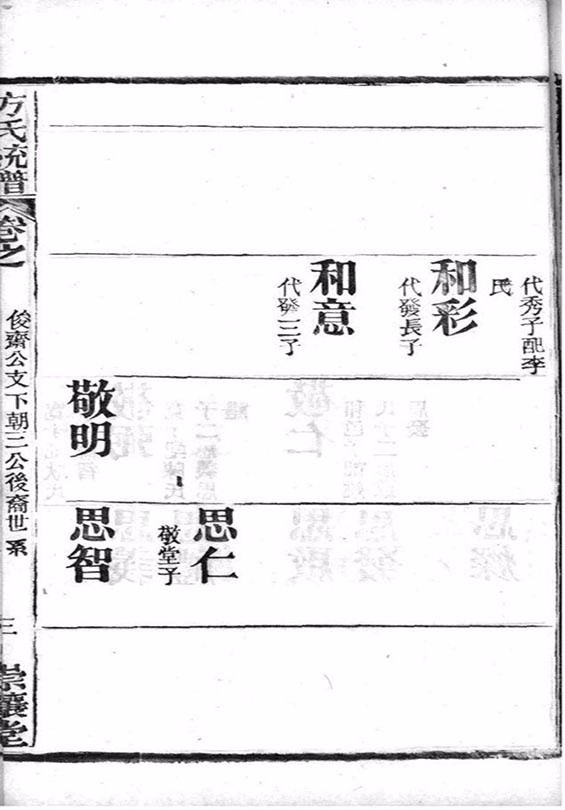 代秀子配李
氏
和彩
代發長子
和意
代發三子
思仁
敬堂子
敬明
思智
方氏統譜
卷之
俊齋公支下朝三公後裔世系
三
崇讓堂